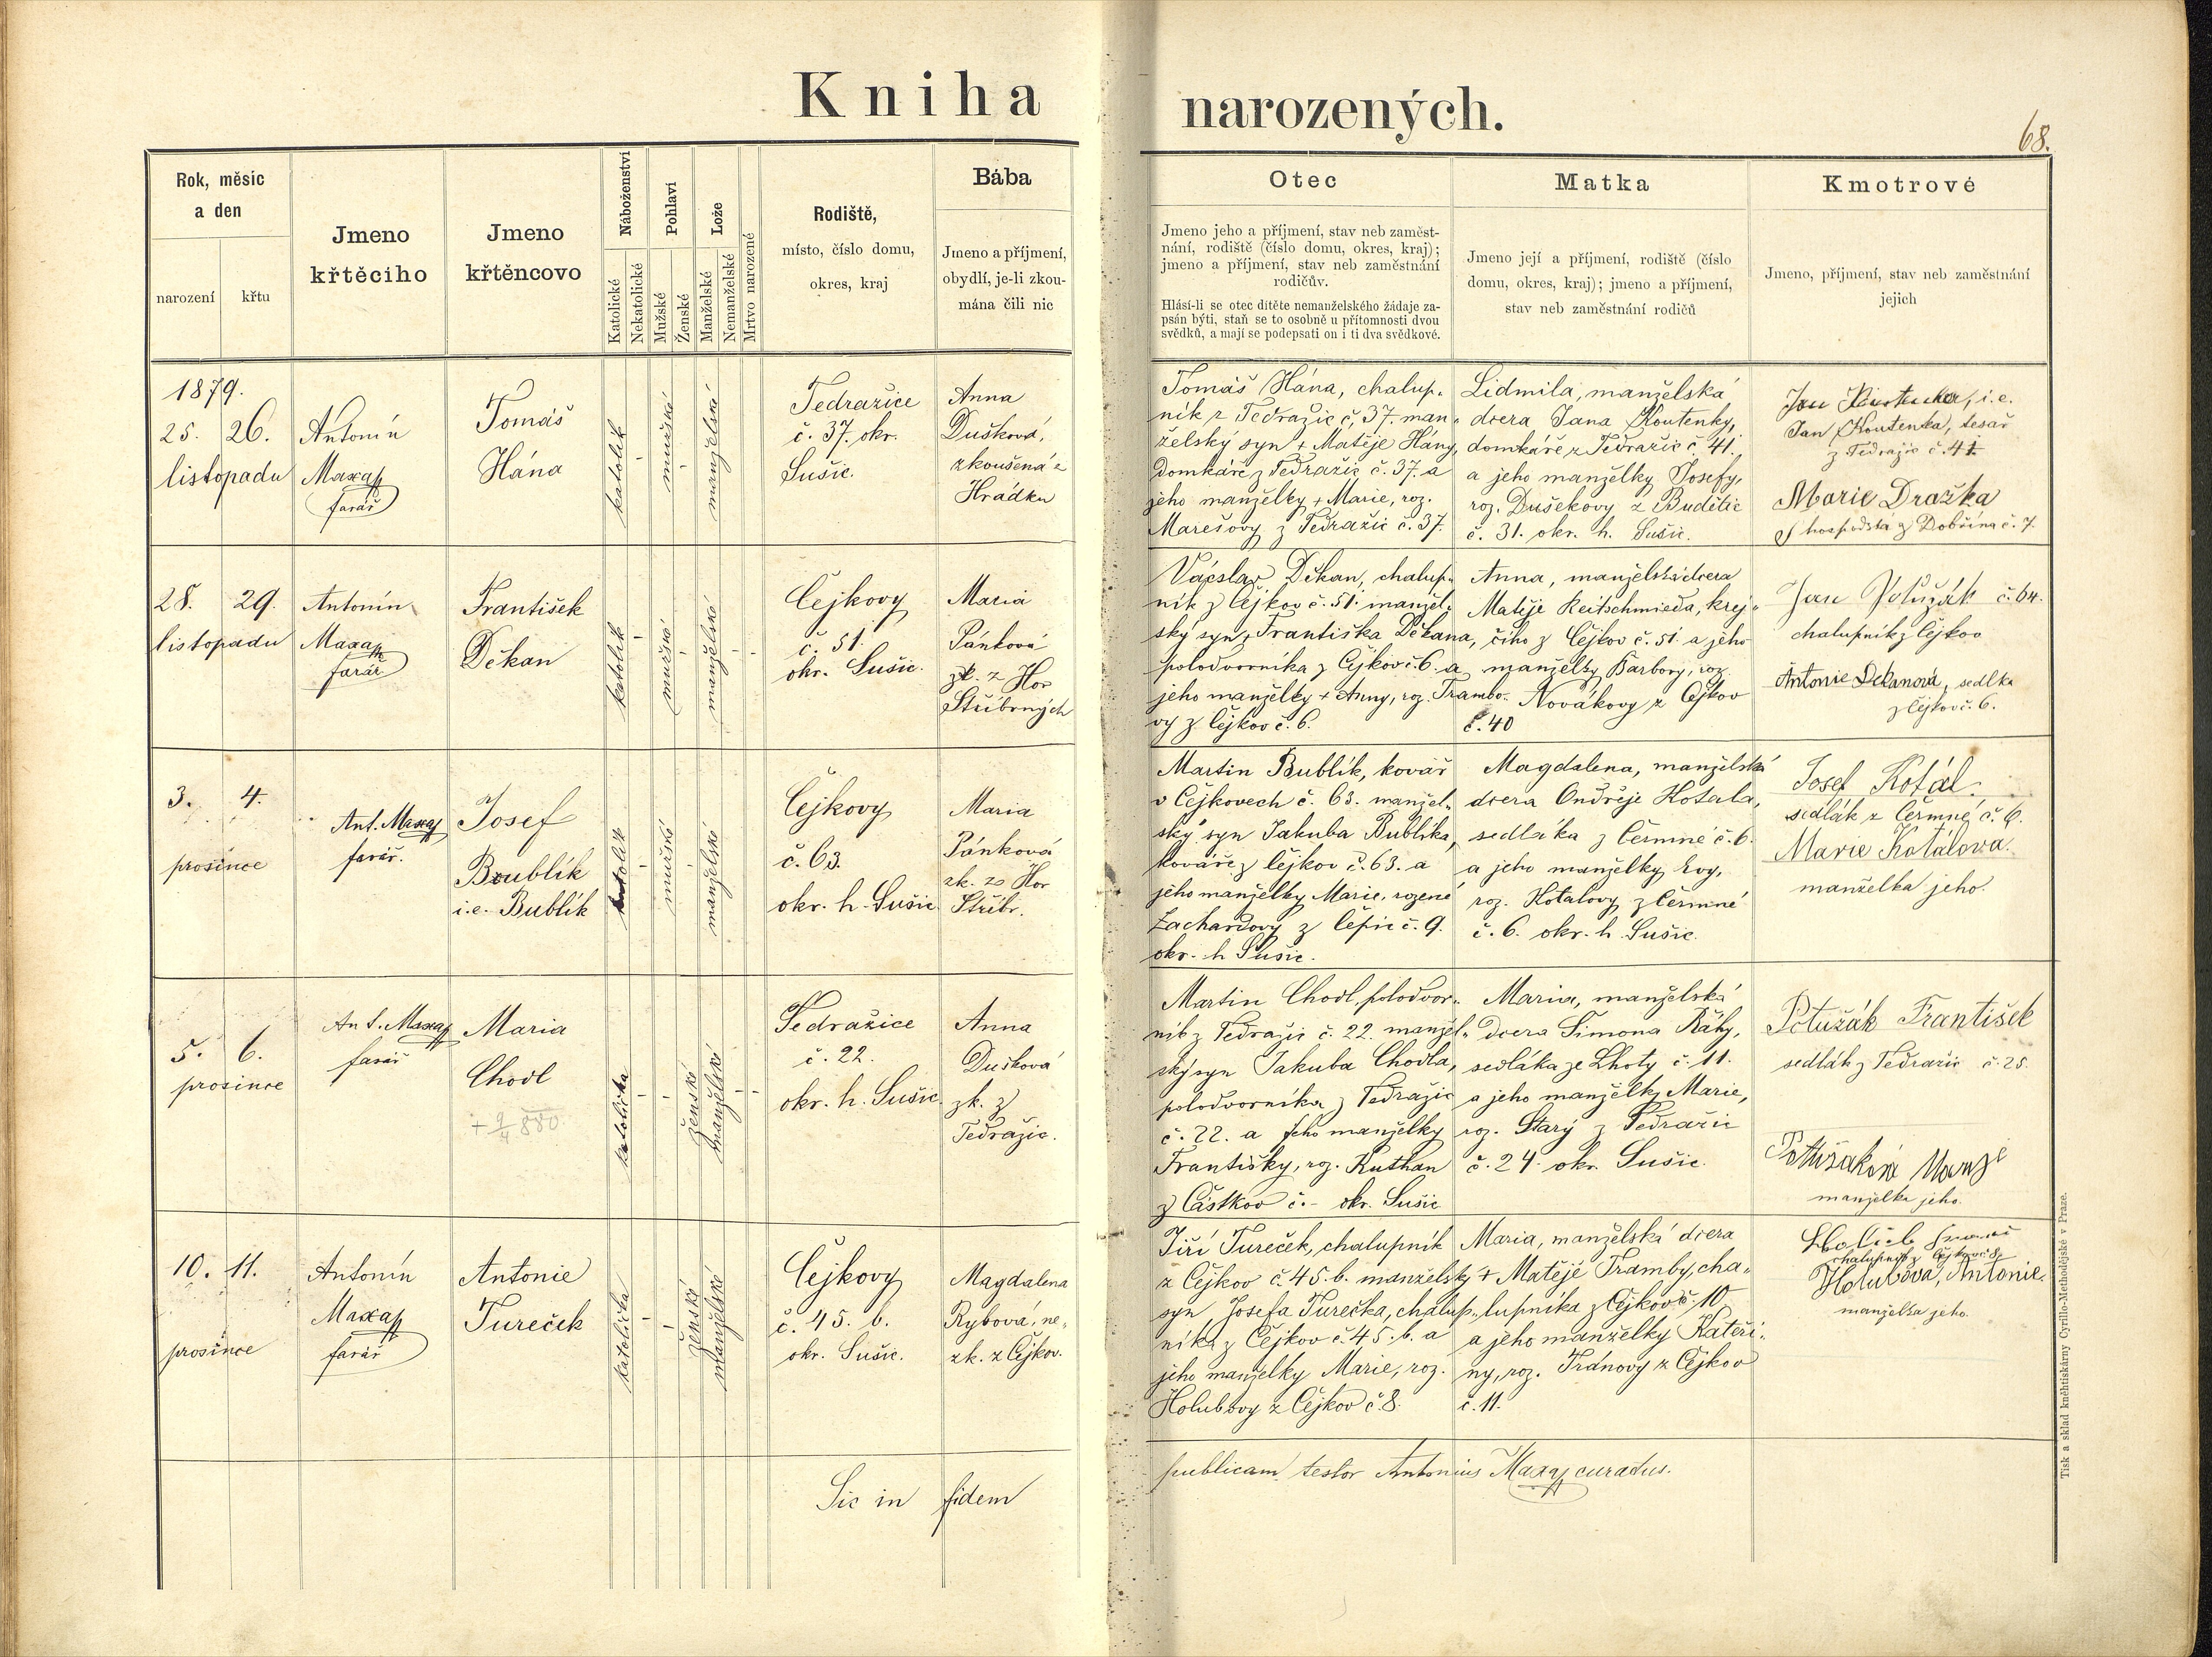 Kniha narozených.
68.
Rok, měsíc
a den
narození
křtu
Jmeno
křtěcího
Jmeno
křtěncovo
Náboženství
Katolické
Nekatolické
Pohlaví
Mužské
Ženské
Lože
Manželské
Nemanželské
Mrtvo narozené
Rodiště,
místo, číslo domu,
okres, kraj
Bába
Jmeno a příjmení,
obydlí, je-li zkou-
mána čili nic
Otec
Jmeno jeho a příjmení, stav neb zaměst-
nání, rodiště (číslo domu, okres, kraj);
jmeno a příjmení, stav neb zaměstnání
rodičův.
Hlásí-li se otec dítěte nemanželského žádaje za-
psán býti, staň se to osobně u přítomnosti dvou
svědků, a mají se podepsati on i ti dva svědkové.
Matka
Jmeno její a příjmení, rodiště (číslo
domu, okres, kraj); jmeno a příjmení,
stav neb zaměstnání rodičů
Kmotrové
Jmeno, příjmení, stav neb zaměstnání
jejich
1879.
25. 26.
listopadu
Antonín
Maxa
farář
Tomáš
Hána
katolík
mužské
manželské
Tedražice
č. 37. okr.
Sušic.
Anna
Dušková,
zkoušená z
Hrádku
Tomáš Hána, chalup-
ník z Tedražic č. 37. man-
želský syn + Matěje Hány,
domkáře z Tedražic č. 37. a
jeho manželky + Marie, roz.
Marešovy z Tedražic č. 37.
Lidmila, manželská
dcera Jana Koutenky,
domkáře z Tedražic č. 41.
a jeho manželky Josefy,
roz. Dušekovy z Budětic
č. 31. okr. h. Sušic.
Jan Koutenka, i.e.
Jan Koutenka, tesař
z Tedražic č. 41
Marie Dražka
hospodská z Dobřína č. 7.
28. 29.
listopadu
Antonín
Maxa
farář
František
Děkan
katolík
mužské
manželské
Čejkovy
č. 51.
okr. Sušic.
Maria
Pánková
zk. z Hor
Stříbrných
Václav Děkan, chalup-
ník z Čejkov č. 51. manžel-
ský syn Františka Děkana,
polodvorníka z Čejkov č. 6. a
jeho manželky + Anny, roz. Trambo-
vy z Čejkov č. 6.
Anna, manželská dcera
Matěje Reitschmieda, krej-
čího z Čejkov č. 51. a jeho
manželky Barbory, roz.
Novákovy z Čejkov
č. 40
Jan Potužák č. 64.
chalupník z Čejkov
Antonie Děkanová, sedlka
z Čejkov č. 6.
3. 4.
prosince
Ant. Maxa
farář.
Josef
Boublík
i.e. Bublík
katolík
mužské
manželské
Čejkovy
č. 63.
okr. h. Sušic
Maria
Pánková
zk. z Hor
Stříbr.
Martin Bublík, kovář
v Čejkovech č. 63. manžel-
ský syn Jakuba Bublíka,
kováře z Čejkov č. 63. a
jeho manželky Marie, rozené
Zachardovy z Čepic č. 9.
okr. h. Sušic.
Magdalena, manželská
dcera Ondřeje Kotala,
sedláka z Čermné č. 6.
a jeho manželky Evy,
roz. Kotalovy z Čermné
č. 6. okr. h. Sušic.
Josef Kotál.
sedlák z Čermné č. 6.
Marie Kotálova.
manželka jeho.
5. 6.
prosince
Ant. Maxa
farář
Maria
Chodl
+ 9/4 880
katolička
ženské
manželské
Tedražice
č. 22.
okr. h. Sušic.
Anna
Dušková
zk. z
Tedražic.
Martin Chodl, polodvor-
ník z Tedražic č. 22. manžel-
ský syn Jakuba Chodla,
polodvorníka z Tedražic
č. 22. a jeho manželky
Františky, roz. Kuthan
z Částkov č. - okr. Sušic
Maria, manželská
dcera Šimona Ráby,
sedláka ze Lhoty č. 11.
a jeho manželky Marie,
roz. Starý z Tedražic
č. 24. okr. Sušic.
Potužák František
sedlák z Tedražic č. 25.
Potužaková
manželka jeho.
10. 11.
prosince
Antonín
Maxa
farář
Antonie
Tureček
katolička
ženské
manželské
Čejkovy
č. 45. b.
okr. Sušic.
Magdalena
Rybová, ne-
zk. z Čejkov.
Jiří Tureček, chalupník
z Čejkov č. 45. b. manželský
syn Josefa Turečka, chalup-
níka z Čejkov č. 45. b. a
jeho manželky Marie, roz.
Holubovy z Čejkov č. 8.
Maria, manželská dcera
+ Matěje Tramby, cha-
lupníka z Čejkov č. 10
a jeho manželky Kateři-
ny, roz. Tránovy z Čejkov
č. 11.
Holub
chalupník z Čejkov č. 8.
Holubova, Antonie.
manželka jeho.
Sic in fidem publicam testor Antonius Maxa curatus.
Tisk a sklad kněhtiskárny Cyrillo-Methodějské v Praze.